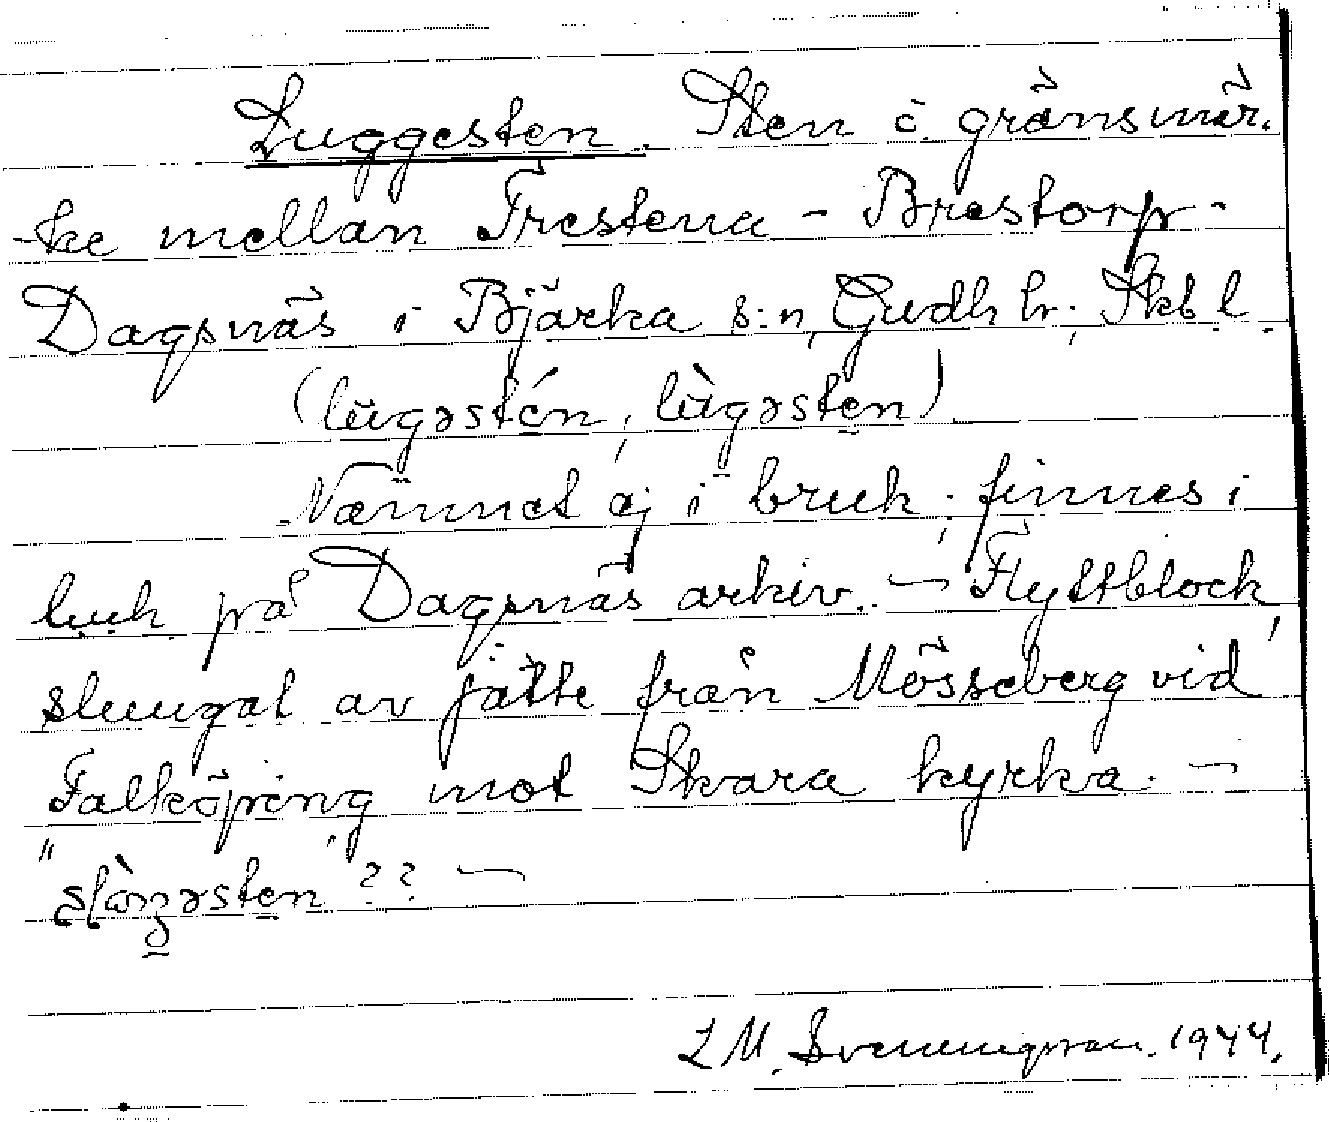 Luggesten. Sten o. gränsmär-
-ke mellan Trestena - Brestorp -
Dagsnäs i Bjärka s:n, Gudh. hr; Skb. l.
(lugəsten, lùgəsten)
Namnet ej i bruk; finnes i
luck på Dagsnäs arkiv. — Flyttblock,
slungat av jätte från Mösseberg vid
Falköping mot Skara kyrka. —
"slàŋəsten"?? —
L M. Svenungsson. 1944.